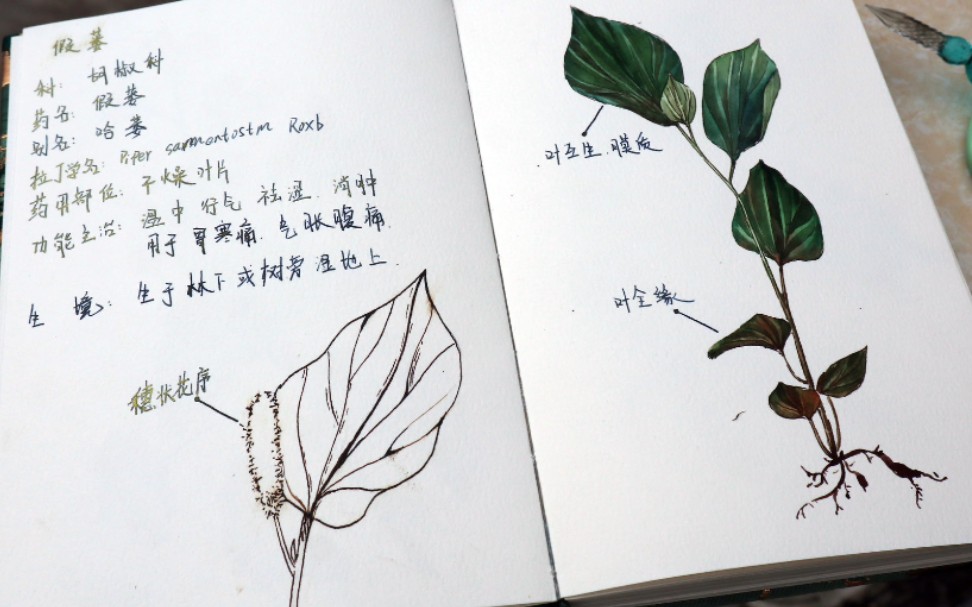 假蒌
科: 胡椒科
药名: 假蒌
别名: 哈蒌
拉丁学名: Piper sarmontostm Roxb
药用部位: 干燥叶片
功能主治: 温中 行气 祛湿. 消肿
用于胃寒痛. 气胀腹痛.
生 境: 生于林下或树旁湿地上.
穗状花序
叶互生. 膜质
叶全缘